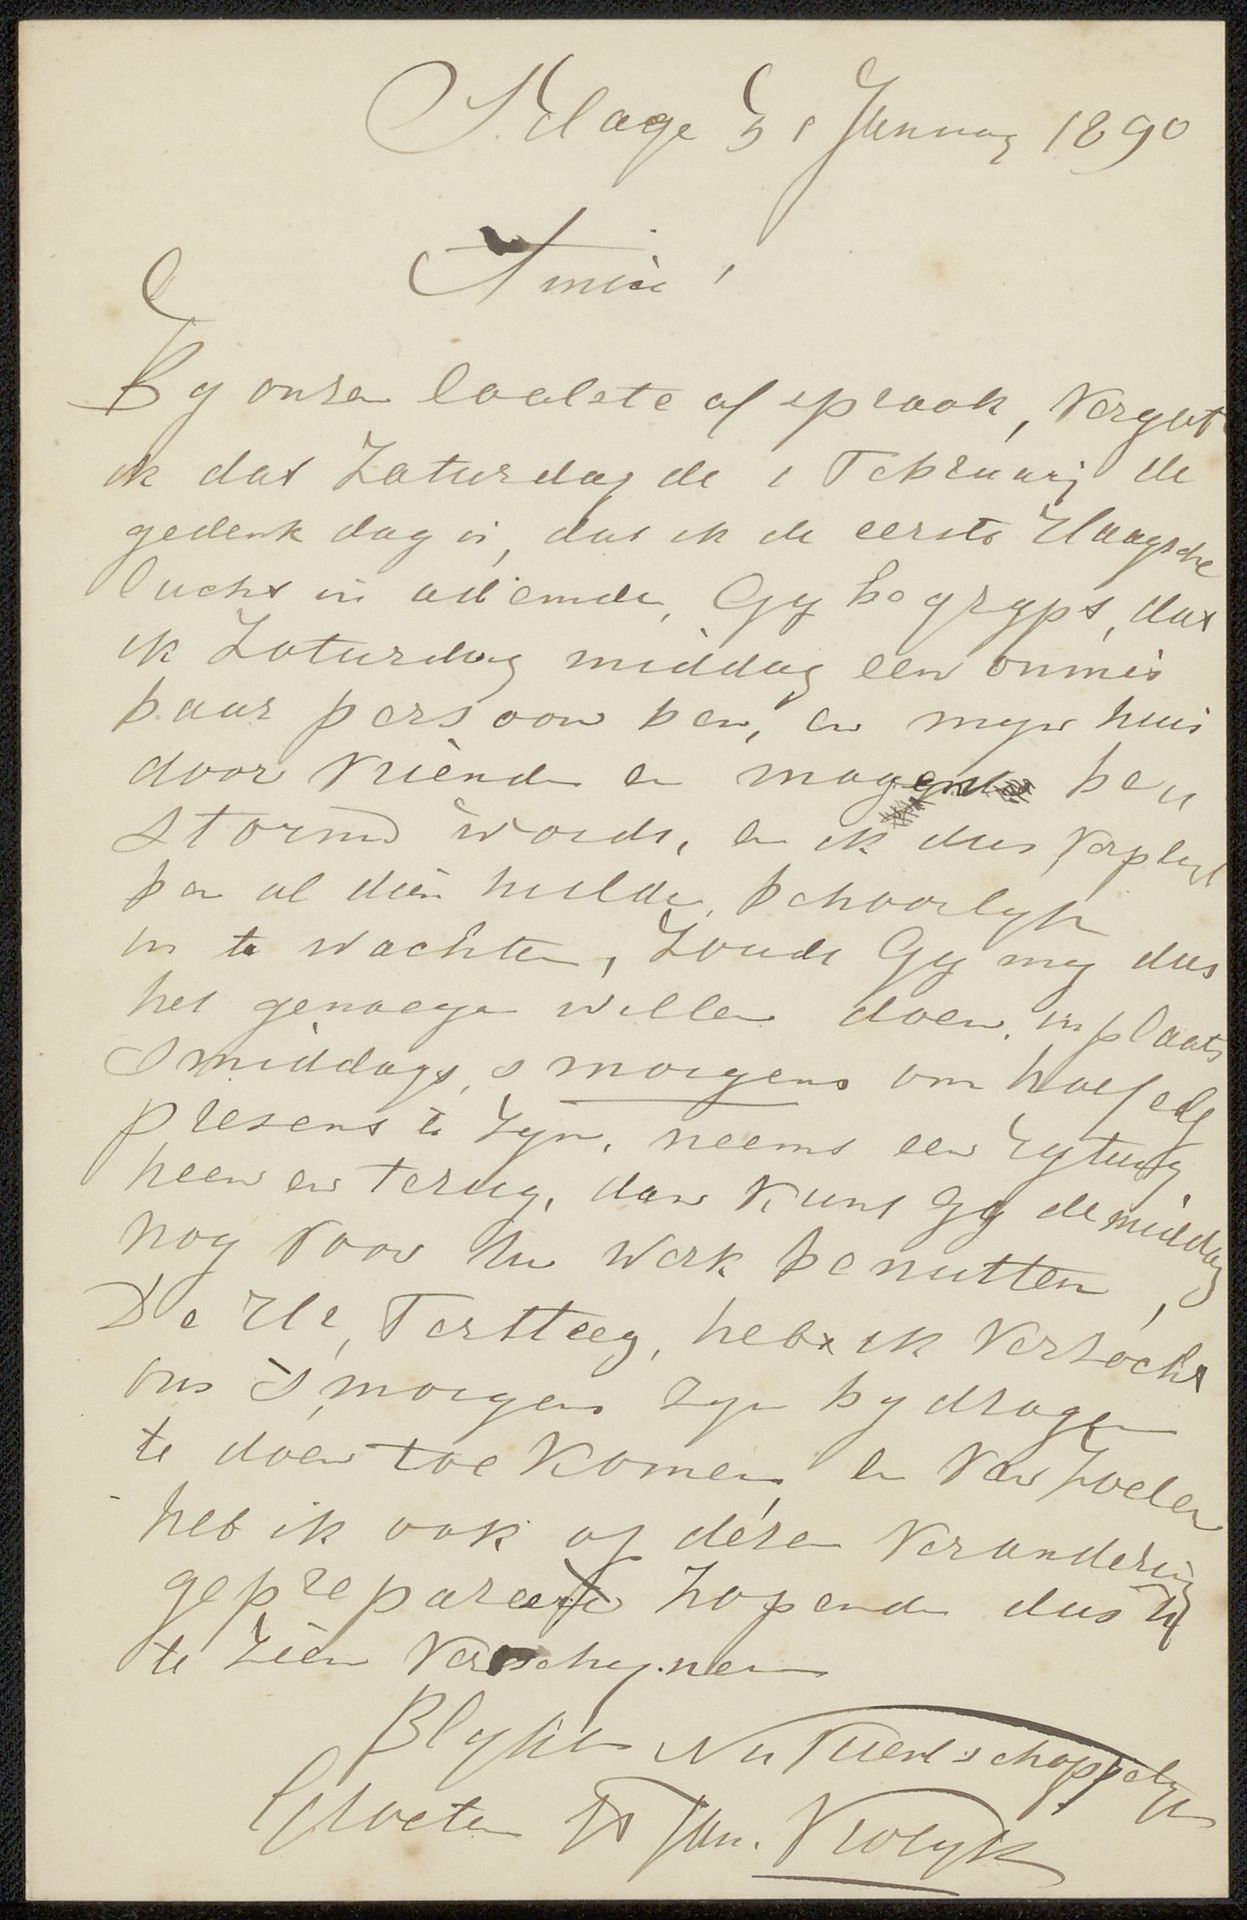 S. Hage 31 January 1890
Amice!
By onze laatste afspraak, vergat
ik dat Zaturdag de 1 Februarij de
gedenk dag is, dat ik de eerste Haagsche
lucht in ademde, Gy begrypt, dat
ik Zaturdag middag een onmis
baar persoon ben, en myn huis
door vrienden en magen be
stormd wordt, en ik dus verplicht
ben al die hulde behoorlyk
in te wachten, Zoude Gy my dus
het genoegen willen doen, in plaats
smiddags, s morgens om half elf
present te zyn, neemt een rytuig
heen en terug, dan kunt Gy de middag
nog voor Uw werk benutten,
De Hr, Tersteeg, heb ik verzocht
ons s'morgens zyn bydragen
te doen toekomen, en van Zoelen
heb ik ook op deze verandering
geprepareerd hopende dus U
te zien verschynen
Blyken Na Vriendschappelyke
Groeten Jan. Vrolyk